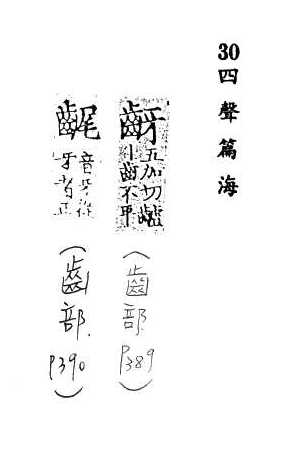 30四聲篇海
齖
五加切
丨齒不平
(齒部 P389)
音牙
牙者正
(齒部. P390)